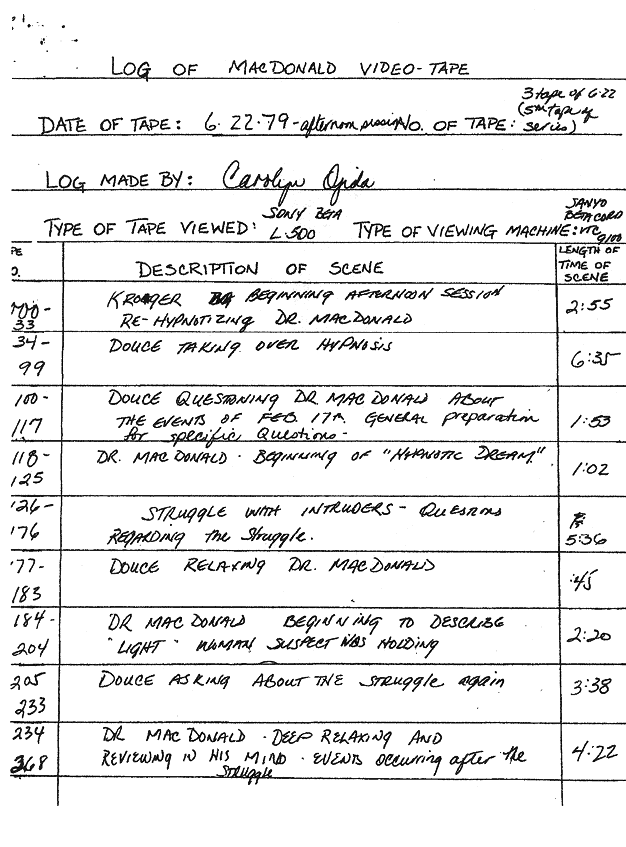 LOG OF MACDONALD VIDEO-TAPE
3 tape of 6-22
(5th tape of
DATE OF TAPE: 6-22-79-afternoon session NO. OF TAPE: series)
LOG MADE BY: Carolyn Ojeda
SONY BETA SANYO
L-500 BETACORD
TYPE OF TAPE VIEWED: TYPE OF VIEWING MACHINE: VTC
9100
PE
O. DESCRIPTION OF SCENE LENGTH OF
TIME OF
SCENE
700- KROGER BEGINNING AFTERNOON SESSION 2:55
33 RE-HYPNOTIZING DR. MACDONALD
34- DOUCE TAKING OVER HYPNOSIS 6:35
99
100- DOUCE QUESTIONING DR. MACDONALD ABOUT
THE EVENTS OF FEB. 17th. GENERAL preparation 1:53
117 for specific Questions-
118- DR. MACDONALD - BEGINNING OF "HYPNOTIC DREAM" 1:02
125
126- STRUGGLE WITH INTRUDERS - QUESTIONS
176 REGARDING the struggle. 5:36
77- DOUCE RELAXING DR. MACDONALD :45
183
184- DR MACDONALD BEGINNING TO DESCRIBE 2:20
204 "LIGHT" WOMAN SUSPECT WAS HOLDING
205 DOUCE ASKING ABOUT THE struggle again 3:38
233
234 DR. MACDONALD - DEEP RELAXING AND
REVIEWING IN HIS MIND - EVENTS occurring after the 4:22
368 struggle